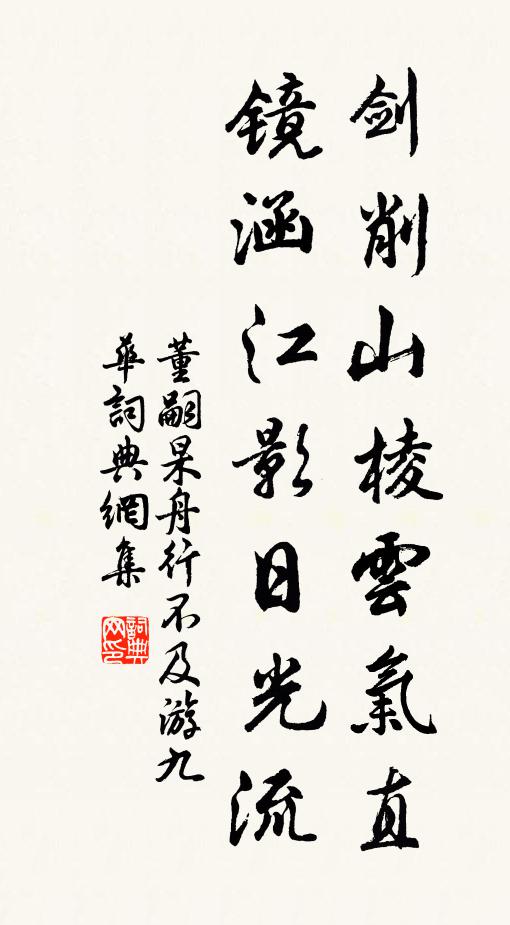 剑削山棱雲氣直
镜涵江影日光流
董嗣杲舟行不及游九
華詞典網集
詞典
网印